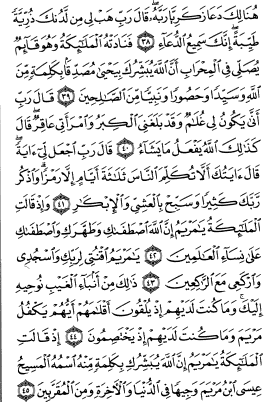 هُنَالِكَ دَعَا زَكَرِيَّا رَبَّهُۥ ۖ قَالَ رَبِّ هَبْ لِى مِن لَّدُنكَ ذُرِّيَّةً
طَيِّبَةً ۖ إِنَّكَ سَمِيعُ ٱلدُّعَآءِ ٣٨ فَنَادَتْهُ ٱلْمَلَٰٓئِكَةُ وَهُوَ قَآئِمٌ
يُصَلِّى فِى ٱلْمِحْرَابِ أَنَّ ٱللَّهَ يُبَشِّرُكَ بِيَحْيَىٰ مُصَدِّقًۢا بِكَلِمَةٍ مِّنَ
ٱللَّهِ وَسَيِّدًا وَحَصُورًا وَنَبِيًّا مِّنَ ٱلصَّٰلِحِينَ ٣٩ قَالَ رَبِّ
أَنَّىٰ يَكُونُ لِى غُلَٰمٌ وَقَدْ بَلَغَنِىَ ٱلْكِبَرُ وَٱمْرَأَتِى عَاقِرٌ ۖ قَالَ
كَذَٰلِكَ ٱللَّهُ يَفْعَلُ مَا يَشَآءُ ٤٠ قَالَ رَبِّ ٱجْعَل لِّىٓ ءَايَةً ۖ
قَالَ ءَايَتُكَ أَلَّا تُكَلِّمَ ٱلنَّاسَ ثَلَٰثَةَ أَيَّامٍ إِلَّا رَمْزًا ۗ وَٱذْكُر
رَّبَّكَ كَثِيرًا وَسَبِّحْ بِٱلْعَشِىِّ وَٱلْإِبْكَٰرِ ٤١ وَإِذْ قَالَتِ
ٱلْمَلَٰٓئِكَةُ يَٰمَرْيَمُ إِنَّ ٱللَّهَ ٱصْطَفَىٰكِ وَطَهَّرَكِ وَٱصْطَفَىٰكِ
عَلَىٰ نِسَآءِ ٱلْعَٰلَمِينَ ٤٢ يَٰمَرْيَمُ ٱقْنُتِى لِرَبِّكِ وَٱسْجُدِى
وَٱرْكَعِى مَعَ ٱلرَّٰكِعِينَ ٤٣ ذَٰلِكَ مِنْ أَنۢبَآءِ ٱلْغَيْبِ نُوحِيهِ
إِلَيْكَ ۚ وَمَا كُنتَ لَدَيْهِمْ إِذْ يُلْقُونَ أَقْلَٰمَهُمْ أَيُّهُمْ يَكْفُلُ
مَرْيَمَ وَمَا كُنتَ لَدَيْهِمْ إِذْ يَخْتَصِمُونَ ٤٤ إِذْ قَالَتِ
ٱلْمَلَٰٓئِكَةُ يَٰمَرْيَمُ إِنَّ ٱللَّهَ يُبَشِّرُكِ بِكَلِمَةٍ مِّنْهُ ٱسْمُهُ ٱلْمَسِيحُ
عِيسَى ٱبْنُ مَرْيَمَ وَجِيهًا فِى ٱلدُّنْيَا وَٱلْءَاخِرَةِ وَمِنَ ٱلْمُقَرَّبِينَ ٤٥